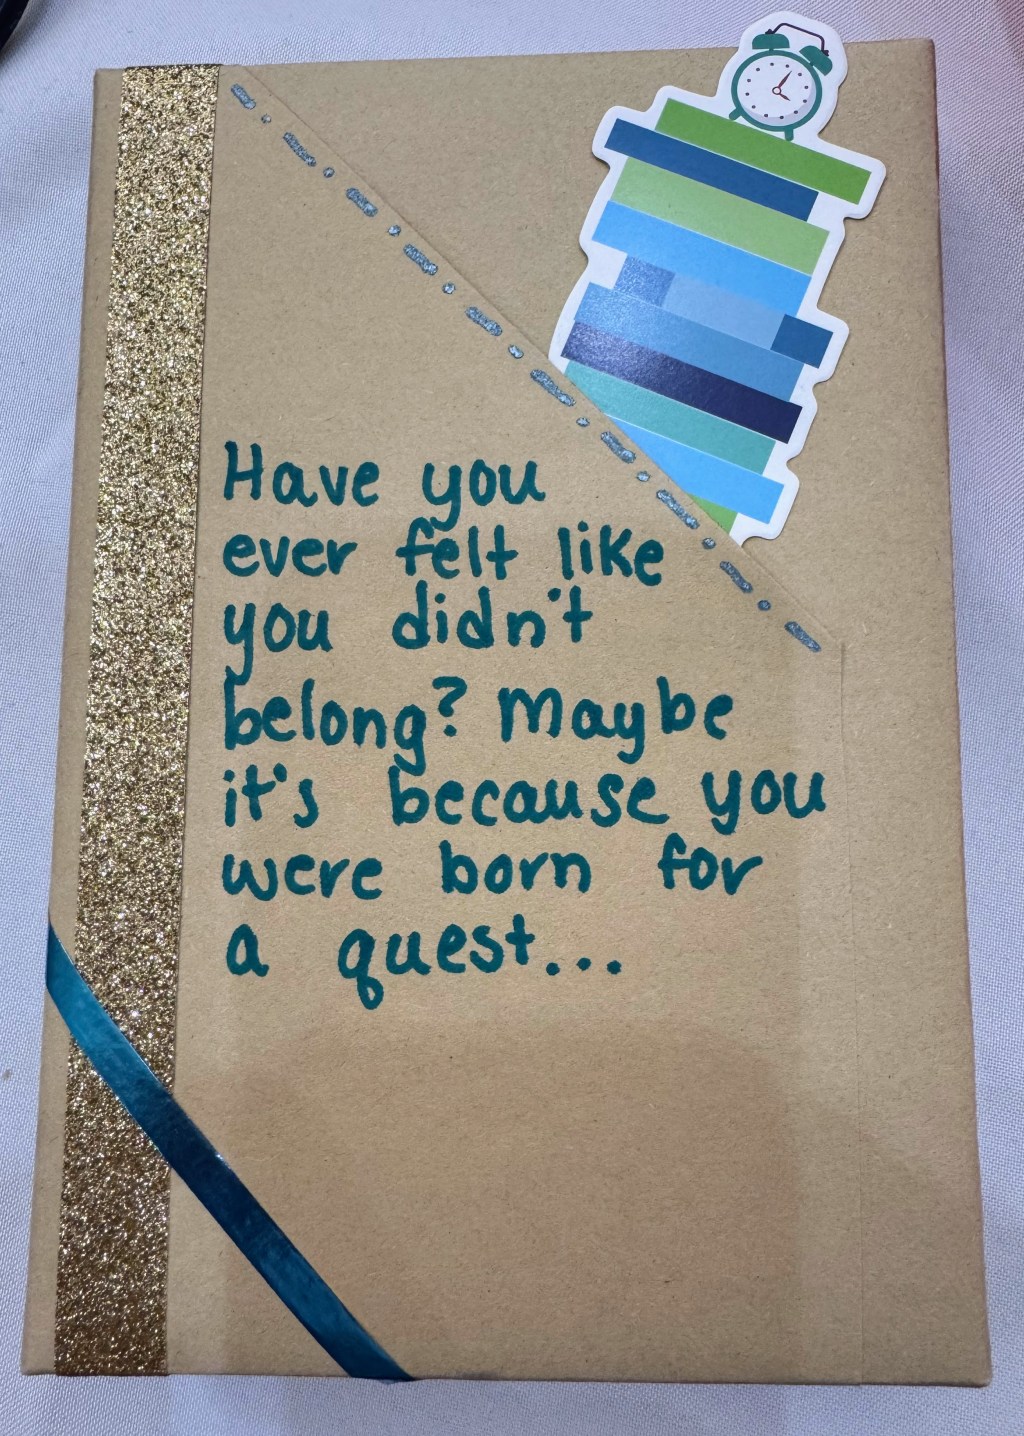 Have you
ever felt like
you didn't
belong? Maybe
it's because you
were born for
a quest...